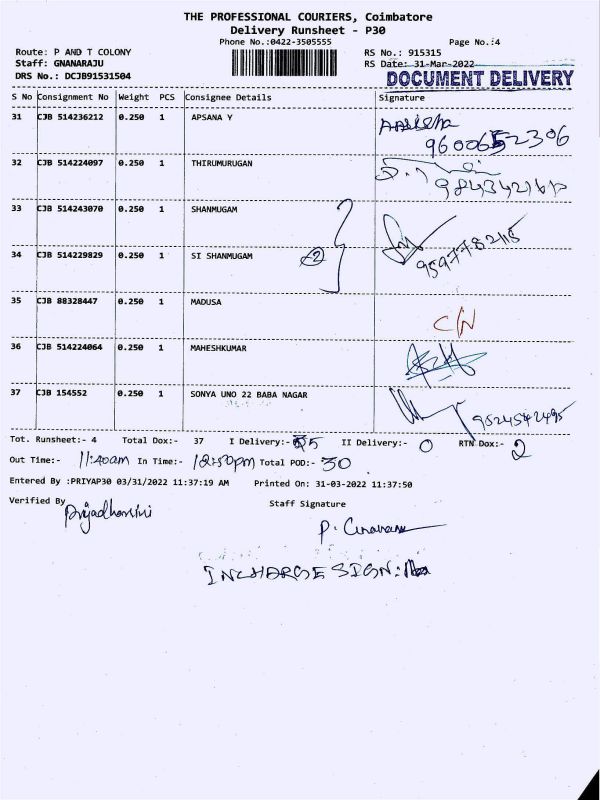 THE PROFESSIONAL COURIERS, Coimbatore
Delivery Runsheet - P30
Phone No.:0422-3505555 Page No.:4
Route: P AND T COLONY RS No.: 915315
Staff: GNANARAJU RS Date: 31-Mar-2022
DRS No.: DCJB91531504 DOCUMENT DELIVERY
S No Consignment No Weight PCS Consignee Details Signature
31 CJB 514236212 0.250 1 APSANA Y
9600652306
32 CJB 514224097 0.250 1 THIRUMURUGAN
33 CJB 514243070 0.250 1 SHANMUGAM
34 CJB 514229829 0.250 1 SI SHANMUGAM 2
9597782115
35 CJB 88328447 0.250 1 MADUSA
C/N
36 CJB 514224064 0.250 1 MAHESHKUMAR
37 CJB 154552 0.250 1 SONYA UNO 22 BABA NAGAR
9524542495
Tot. Runsheet:- 4 Total Dox:- 37 I Delivery:- II Delivery:- 0 RTN Dox:- 2
Out Time:- 11:40am In Time:- Total POD:- 30
Entered By :PRIYAP30 03/31/2022 11:37:19 AM Printed On: 31-03-2022 11:37:50
Verified By Staff Signature
Priyadharsini
INCHARGE SIGN: